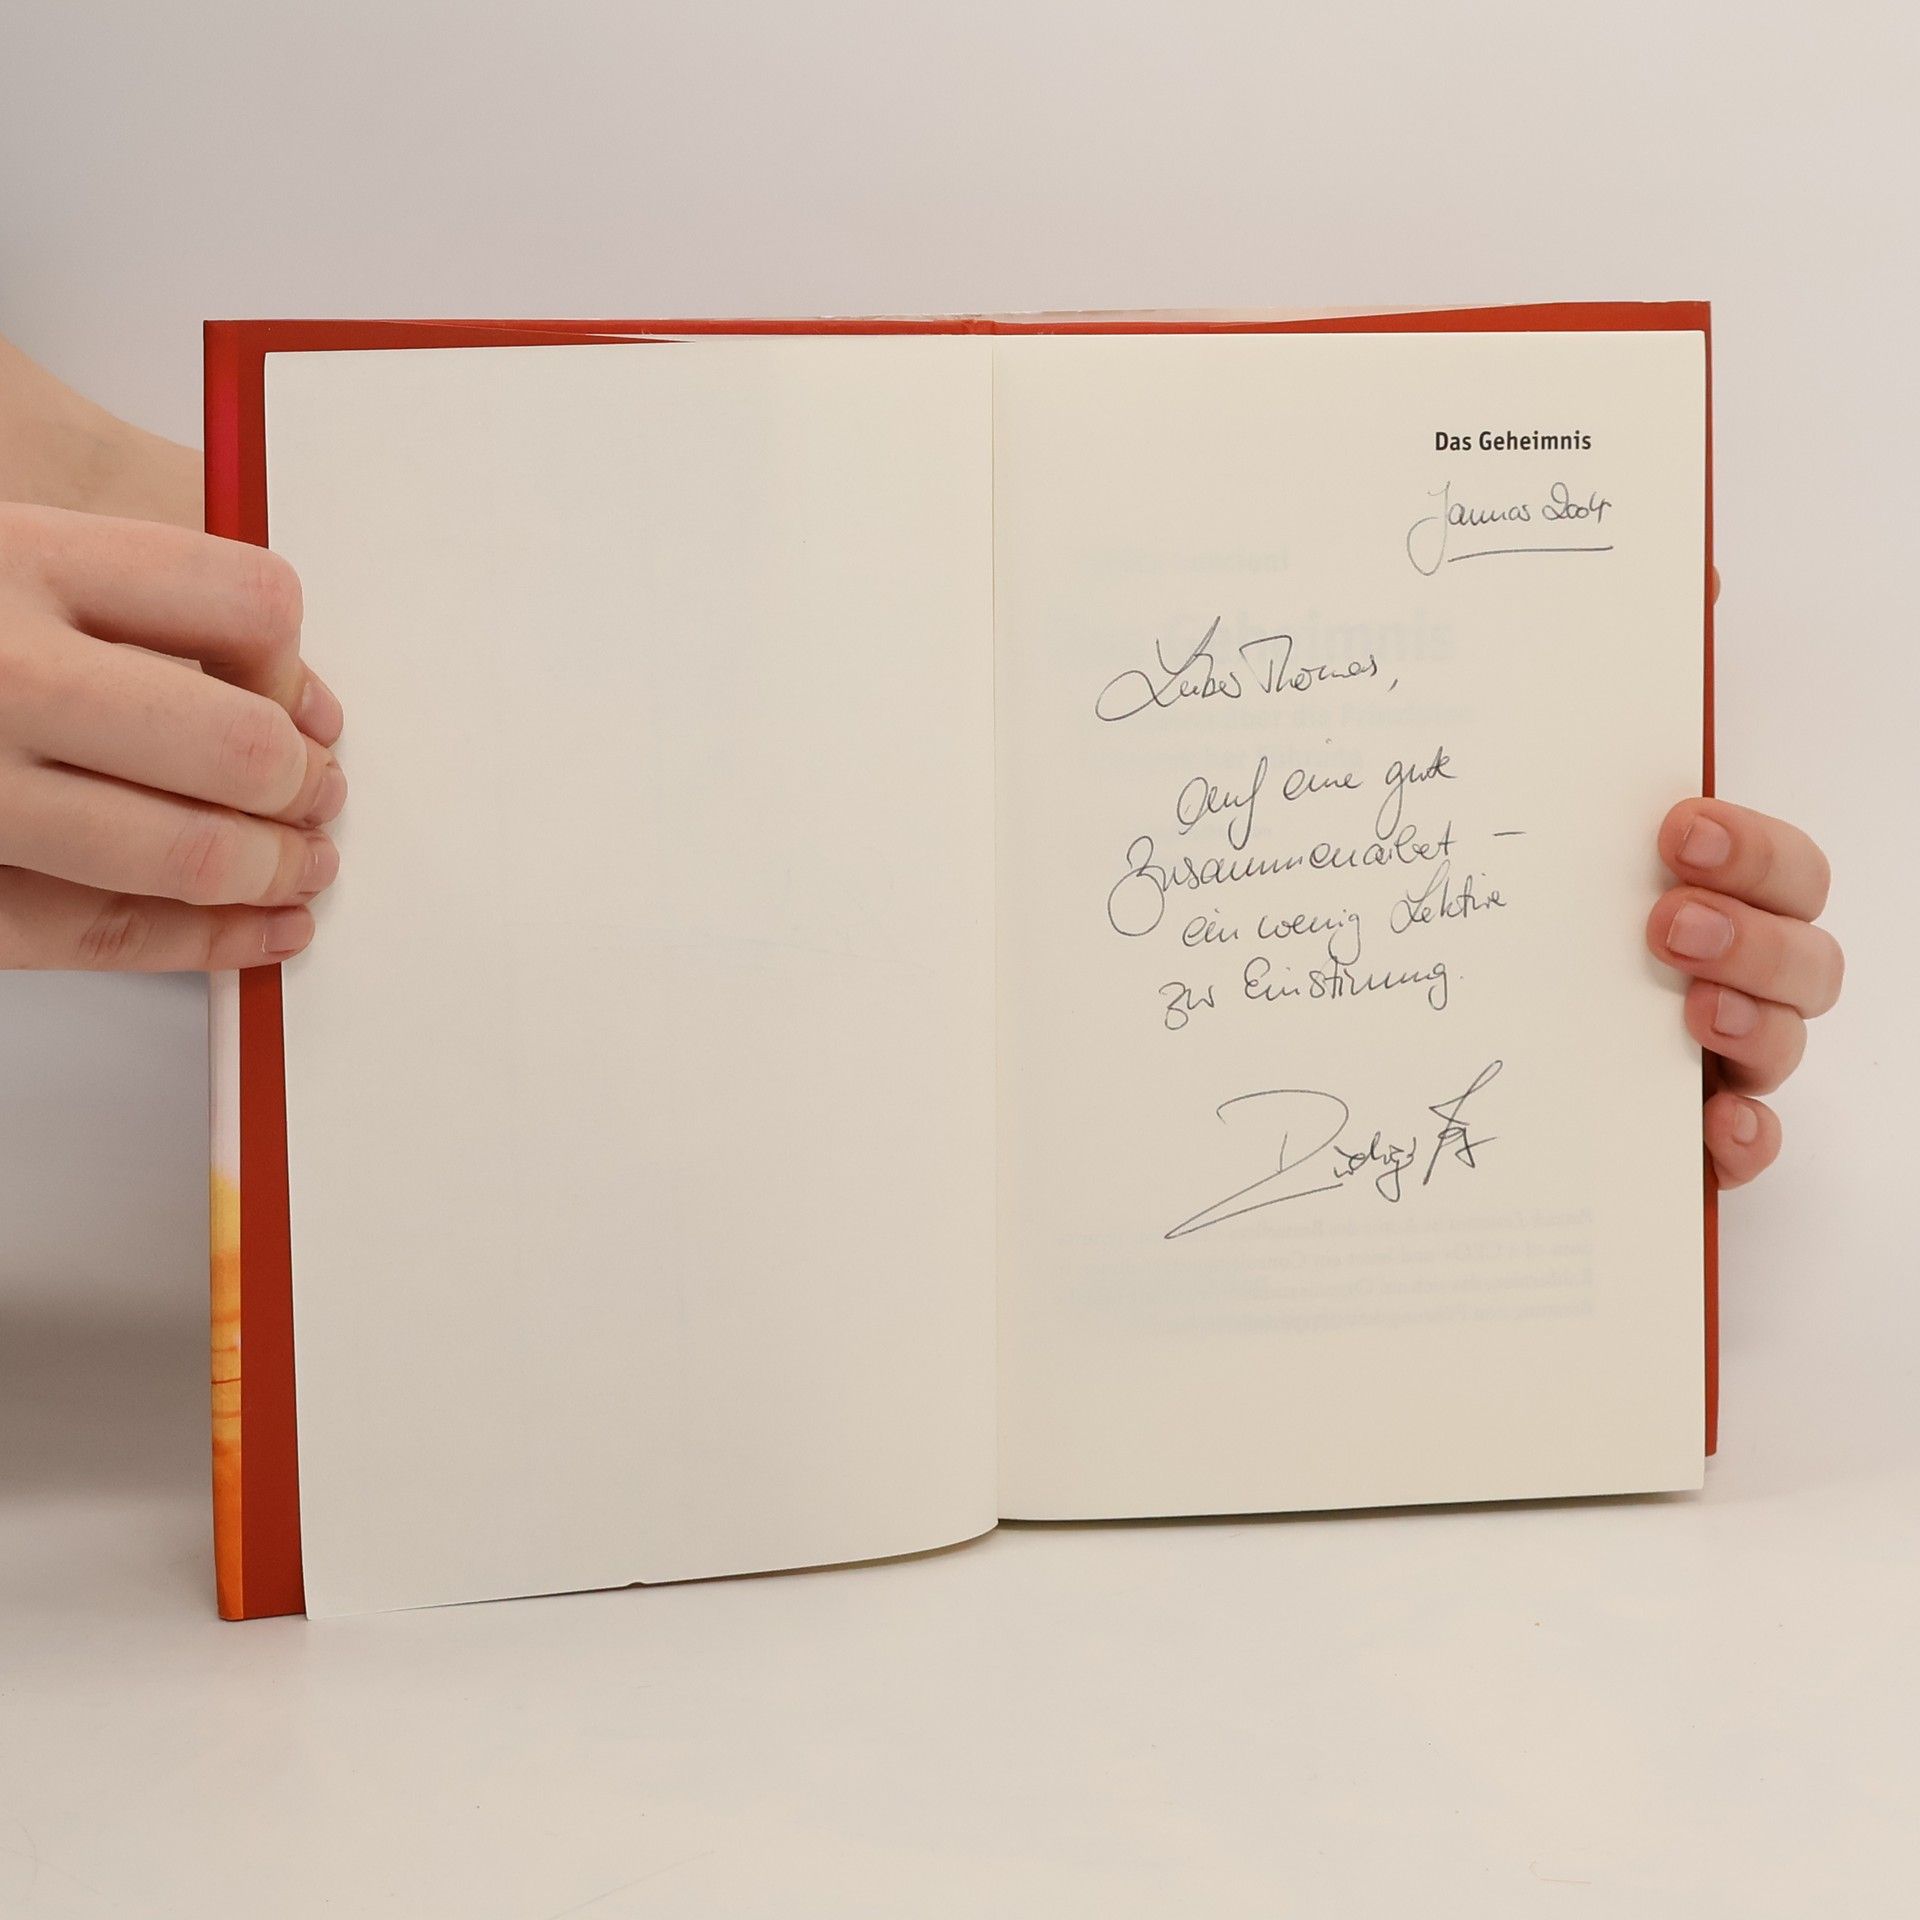 Das Geheimnis
Januar 2004
Lieber Thomas,
auf eine gute
Zusammenarbeit –
ein wenig Lektüre
zur Einstimmung.